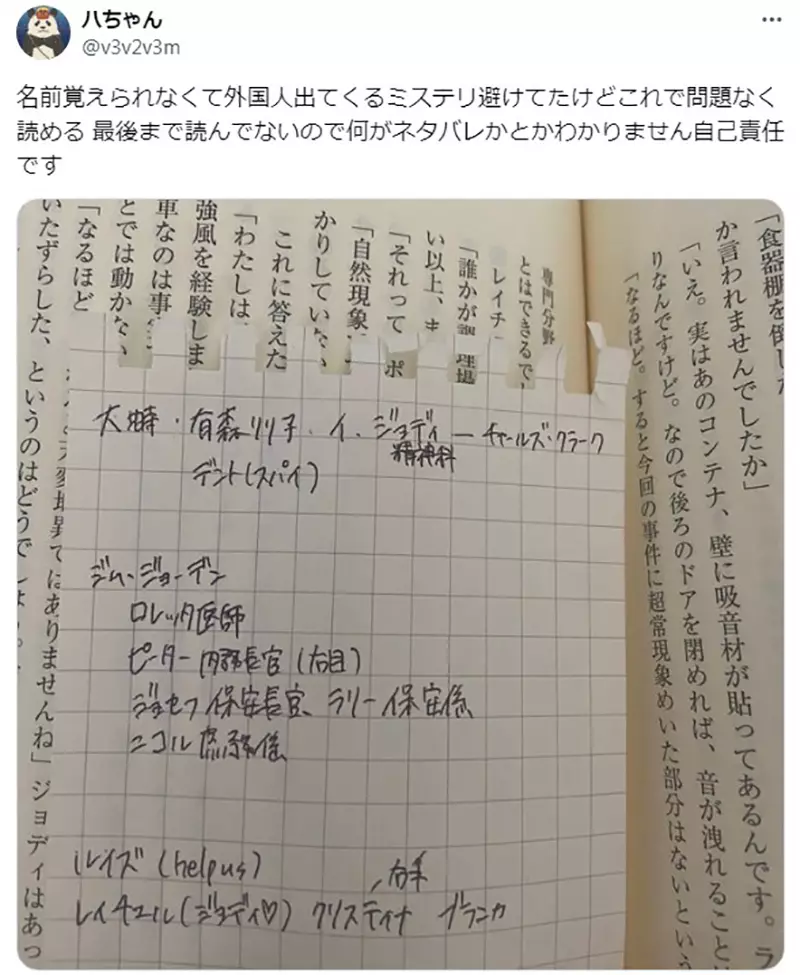 八ちゃん
@v3v2v3m
名前覚えられなくて外国人出てくるミステリ避けてたけどこれで問題なく
読める 最後まで読んでないので何がネタバレかとかわかりません自己責任
です
「食器棚を倒した
か言われませんでしたか」
「いえ。実はあのコンテナ、壁に吸音材が貼ってあるんです。ラ
りなんですけど。なので後ろのドアを閉めれば、音が洩れること
「なるほど。すると今回の事件に超常現象めいた部分はないという
専門分野
とはできるで
レイチ
「誰かが調理場
い以上、
「それって ポ
「自然現象
かりしていな
これに答えた
「わたしは
強風を経験しま
車なのは事
とでは動かない
「なるほど
いたずらした、というのはどうでし
大変異ではありませんね」ジョディはあっ
大時・有森りり子・イ・ジョディ ー チャールズ・クラーク
精神科
デント(スパイ)
ジム・ジョーデン
ロレッタ医師
ピーター 内部長官(右目)
ジョセフ 保安長官、ラリー 保安係
ニコル 係
ルイズ(helpus)
右手
レイチェル(ジョディ♡) クリスティナ ブランカ